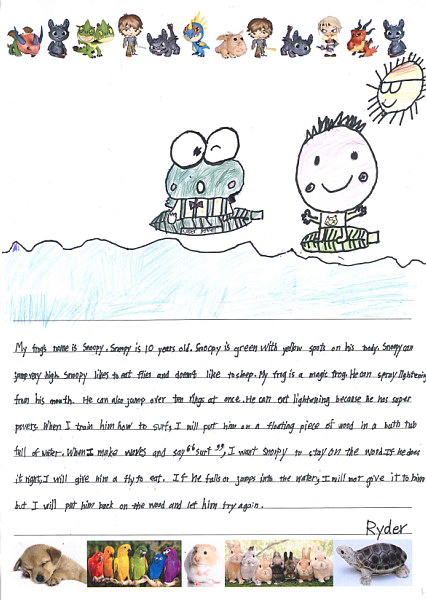 super power
My frog's name is Snoopy. Snoopy is 10 years old. Snoopy is green with yellow spots on his body. Snoopy can
jump very high. Snoopy likes to eat flies and doesn't like to sleep. My frog is a magic frog. He can spray lightening
from his mouth. He can also jump over ten rings at once. He can eat lightening because he has super
powers. When I train him how to surf, I will put him on a floating piece of wood in a bath tub
full of water. When I make waves and say "surf", I want Snoopy to stay on the wood. If he does
it right, I will give him a fly to eat. If he falls or jumps into the water, I will not give it to him
but I will put him back on the wood and let him try again.
Ryder